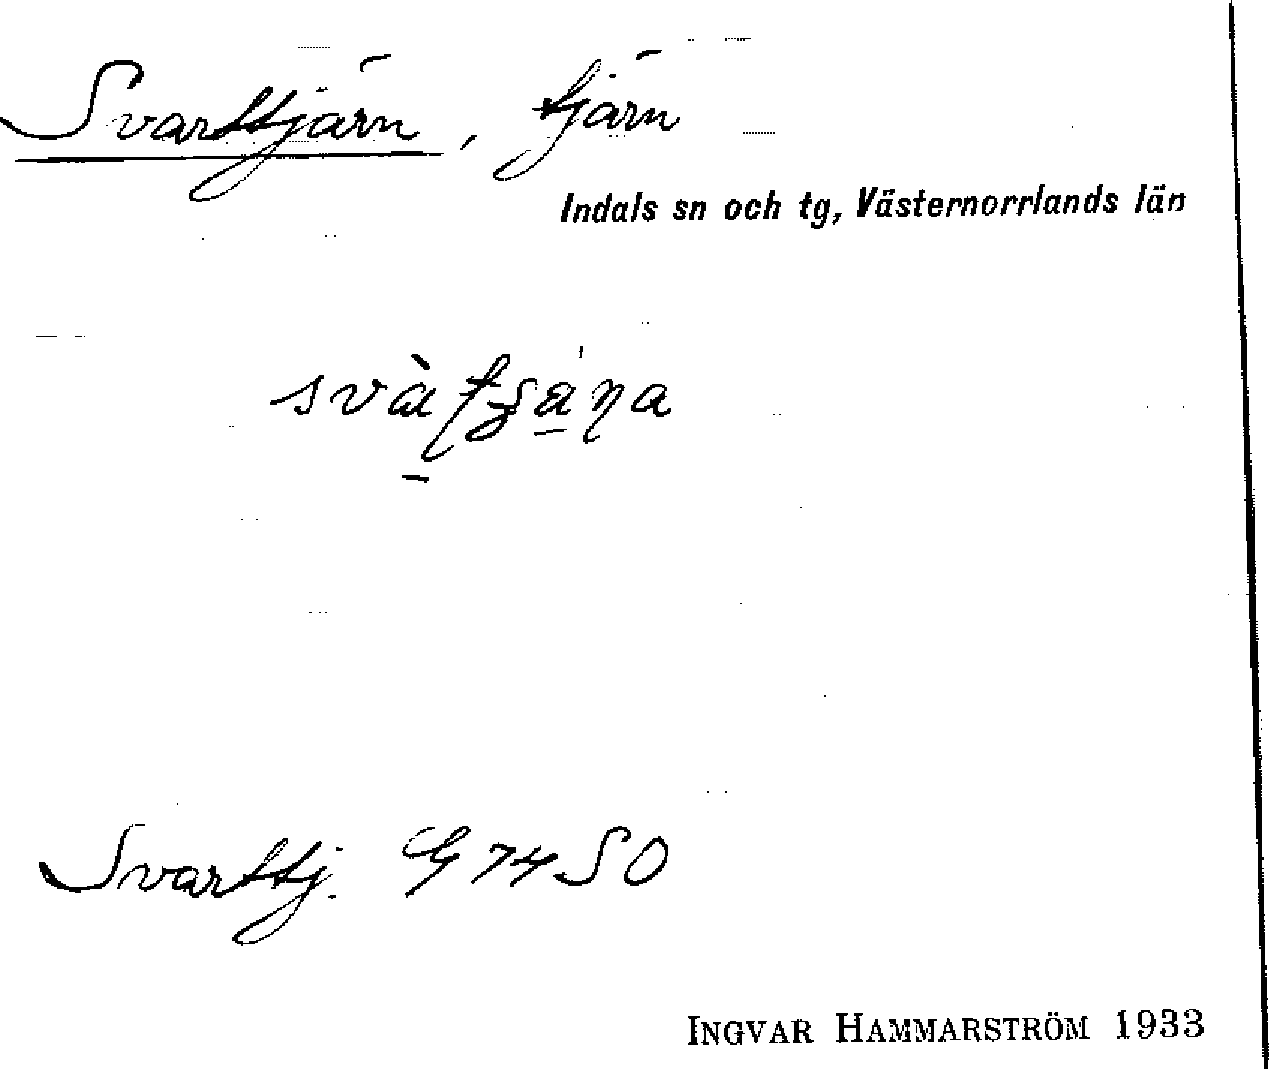 Svarttjärn, tjärn
Indals sn och tg, Västernorrlands län
Svarttj. G 74 SO
INGVAR HAMMARSTRÖM 1933